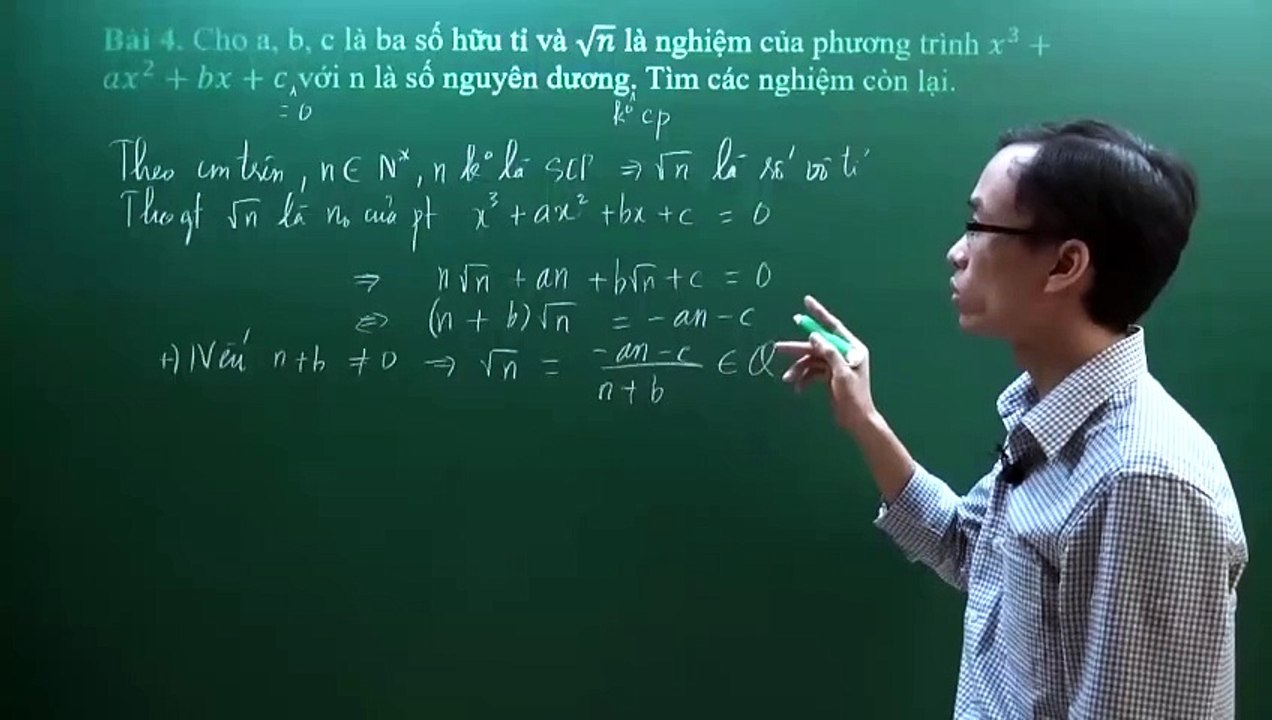 Bài 4. Cho a, b, c là ba số hữu tỉ và √n là nghiệm của phương trình x³ +
ax² + bx + c với n là số nguyên dương. Tìm các nghiệm còn lại.
= 0 k° cp
Theo cm trên, n ∈ N*, n k° là SCP ⇒ √n là số vô tỉ
Theo gt √n là n₀ của pt x³ + ax² + bx + c = 0
⇒ n√n + an + b√n + c = 0
⇔ (n + b)√n = -an - c
+) Nếu n+b ≠ 0 ⇒ √n = (-an - c)/(n + b) ∈ Q